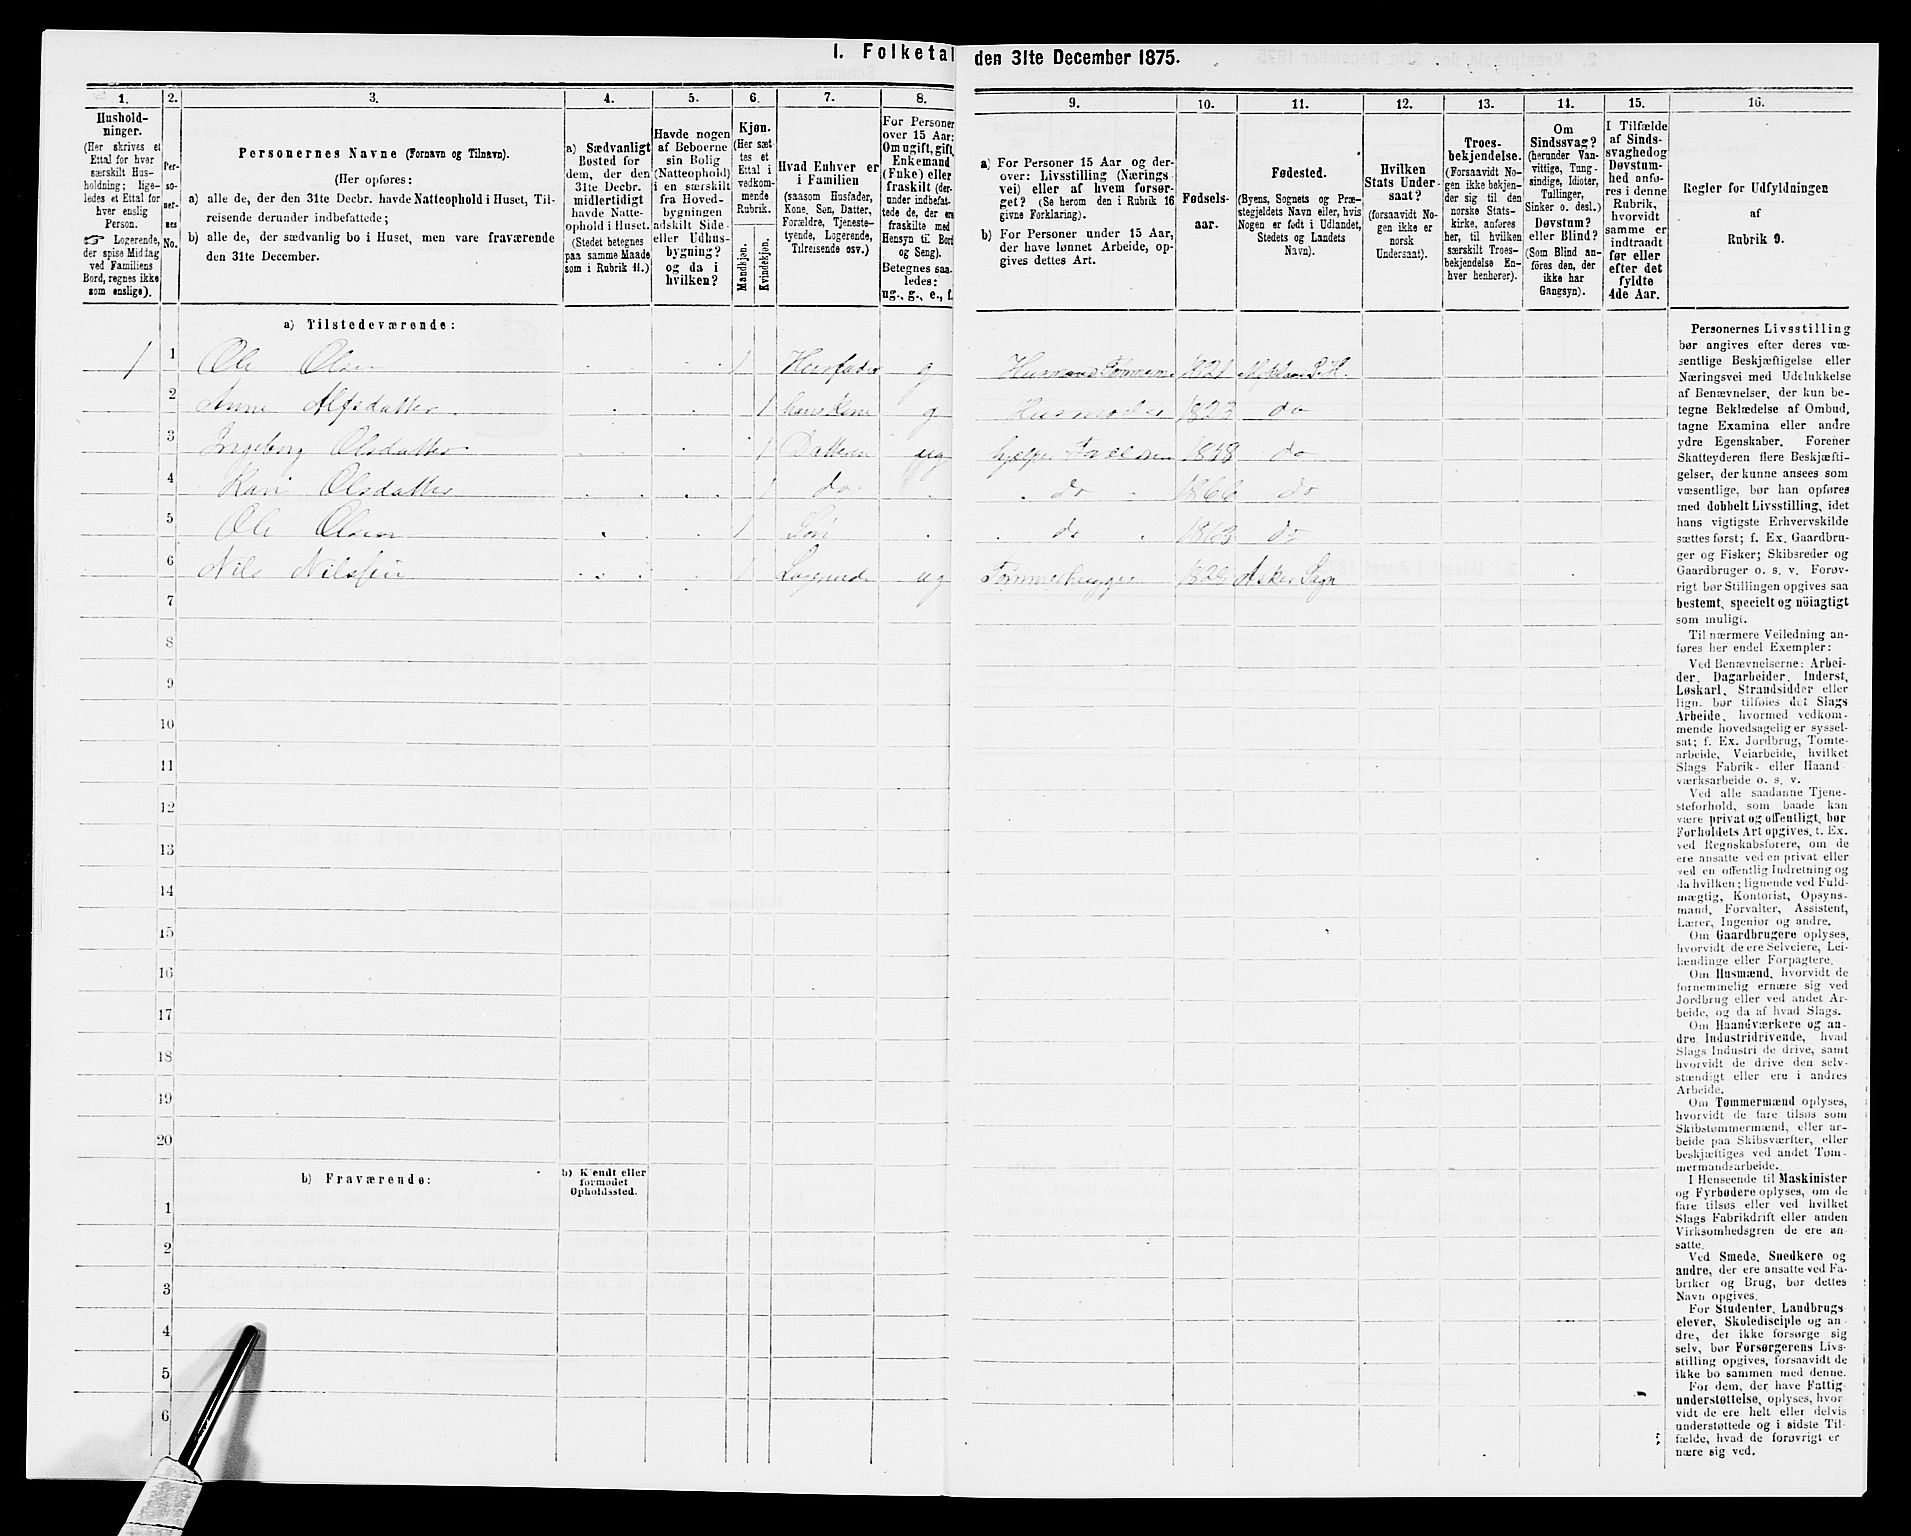 1. Folketal den 31te December 1875.
1. 2. 3. 4. 5. 6. 7. 8. 9. 10. 11. 12. 13. 14. 15. 16.
Hushold-
ninger.
(Her skrives et
Ettal for hver
særskilt Hus-
holdning; lige-
ledes et Ettal for
hver enslig
Person.
☞ Logerende,
der spise Middag
ved Familiens
Bord, regnes ikke
som enslige).
Per-
so-
ner-
nes
No.
Personernes Navne (Fornavn og Tilnavn).
(Her opføres:
a) alle de, der den 31te Decbr. havde Natteophold i Huset, Til-
reisende derunder indbefattede;
b) alle de, der sædvanlig bo i Huset, men vare fraværende
den 31te December.
a) Sædvanligt
Bosted for
dem, der den
31te Decbr.
midlertidigt
havde Natte-
ophold i Huset.
(Stedet betegnes
paa samme Maade
som i Rubrik 11.)
Havde nogen
af Beboerne
sin Bolig
(Natteophold)
i en særskilt
fra Hoved-
bygningen
adskilt Side-
eller Udhus-
bygning?
og da i
hvilken?
Kjøn.
(Her sæt-
tes et
Ettal i
vedkom-
mende
Rubrik.
Mandkjøn.
Kvindekjøn.
Hvad Enhver er
i Familien
(saasom Husfader,
Kone, Søn, Datter,
Forældre, Tjeneste-
tyende, Logerende,
Tilreisende osv.)
For Personer
over 15 Aar:
Om ugift, gift,
Enkemand
(Enke) eller
fraskilt (der-
under indbefat-
tede de, der ere
fraskilte med
Hensyn til Bord
og Seng).
Betegnes saa-
ledes:
ug., g., e., f.
a) For Personer 15 Aar og der-
over: Livsstilling (Nærings-
vei) eller af hvem forsør-
get? (Se herom den i Rubrik 16
givne Forklaring).
b) For Personer under 15 Aar,
der have lønnet Arbeide, op-
gives dettes Art.
Fødsels-
aar.
Fødested.
(Byens, Sognets og Præ-
stegjeldets Navn eller, hvis
Nogen er født i Udlandet,
Stedets og Landets
Navn).
Hvilken
Stats Under-
saat?
(forsaavidt No-
gen ikke er
norsk
Undersaat).
Troes-
bekjendelse.
(Forsaavidt No-
gen ikke bekjen-
der sig til den
norske Stats-
kirke, anføres
her, til hvilken
særskilt Troes-
bekjendelse En-
hver henhører).
Om
Sindssvag?
(herunder Van-
vittige, Tung-
sindige, Idioter,
Tullinger,
Sinker o. desl.)
Døvstum?
eller Blind?
(Som Blind an-
føres den, der
ikke har
Gangsyn).
I Tilfælde
af Sinds-
svaghed og
Døvstum-
hed anfø-
res i denne
Rubrik,
hvorvidt
samme er
indtraadt
før eller
efter det
fyldte
4de Aar.
Regler for Udfyldningen
af
Rubrik 9.
a) Tilstedeværende:
1 1 Ole Olsen 1 Husfader g 1821
2 Anne Alfsdatter 1 hans Kone g Husmoder 1823 do
3 Ingeborg Olsdatter 1 Datteren ug hjælper Forældren 1858 do
4 Kari Olsdatter 1 do do 1866 do
5 Ole Olsen 1 Søn do 1863 do
6 Nils Nilssen 1 Logerende ug Tømmerhugger Asker Sogn
7
8
9
10
11
12
13
14
15
16
17
18
19
20
b) Fraværende:
b) Kjendt eller
formodet
Opholdssted.
1
2
3
4
5
6
Personernes Livsstilling
bør angives efter deres væ-
sentlige Beskjæftigelse eller
Næringsvei med Udelukkelse
af Benævnelser, der kun be-
tegne Beklædelse af Ombud,
tagne Examina eller andre
ydre Egenskaber. Forener
Skatteyderen flere Beskjæfti-
gelser, der kunne ansees som
væsentlige, bør han opføres
med dobbelt Livsstilling, idet
hans vigtigste Erhvervskilde
sættes først; f. Ex. Gaardbru-
ger og Fisker; Skibsreder og
Gaardbruger o. s. v. Forøv-
rigt bør Stillingen opgives saa
bestemt, specielt og nöiagtigt
som muligt.
Til nærmere Veiledning an-
føres her endel Exempler:
Ved Benævnelserne: Arbei-
der, Dagarbeider, Inderst,
Løskarl, Strandsidder eller
lign. bør tilføies det Slags
Arbeide, hvormed vedkom-
mende hovedsagelig er syssel-
sat; f. Ex. Jordbrug, Tomte-
arbeide, Veiarbeide, hvilket
Slags Fabrik- eller Haand
værksarbeide o. s. v.
Ved alle saadanne Tjene-
steforhold, som baade kan
være privat og offentligt, bør
Forholdets Art opgives, t. Ex.
ved Regnskabsførere, om de
ere ansatte ved en privat eller
ved en offentlig Indretning og
da hvilken; lignende ved Fuld-
mægtig, Kontorist, Opsyns-
mand, Forvalter, Assistent,
Lærer, Ingeniør og andre.
Om Gaardbrugere oplyses,
hvorvidt de ere Selveiere, Lei-
lændinge eller Forpagtere.
Om Husmænd, hvorvidt de
fornemmelig ernære sig ved
Jordbrug eller ved andet Ar-
beide, og da af hvad Slags.
Om Haandværkere og an-
dre Industridrivende, hvad
Slags Industri de drive, samt
hvorvidt de drive den selv-
stændigt eller ere i andres
Arbeide.
Om Tømmermænd oplyses,
hvorvidt de fare tilsøs som
Skibstømmermænd, eller ar-
beide paa Skibsværfter, eller
beskjæftiges ved andet Tøm-
mermandsarbeide.
I Henseende til Maskinister
og Fyrbødere oplyses, om de
fare tilsøs eller ved hvilket
Slags Fabrikdrift eller anden
Virksomhedsgren de ere an-
satte.
Ved Smede, Snedkere og
andre, der ere ansatte ved Fa-
briker og Brug, bør dettes
Navn opgives.
For Studenter, Landbrugs
elever, Skoledisciple og an-
dre, der ikke forsørge sig
selv, bør Forsørgerens Livs-
stilling opgives, forsaavidt de
ikke bo sammen med denne.
For dem, der have Fattig-
understøttelse, oplyses, hvor-
vidt de ere helt eller delvis
understøttede og i sidste Til-
fælde, hvad de forøvrigt er
nære sig ved.